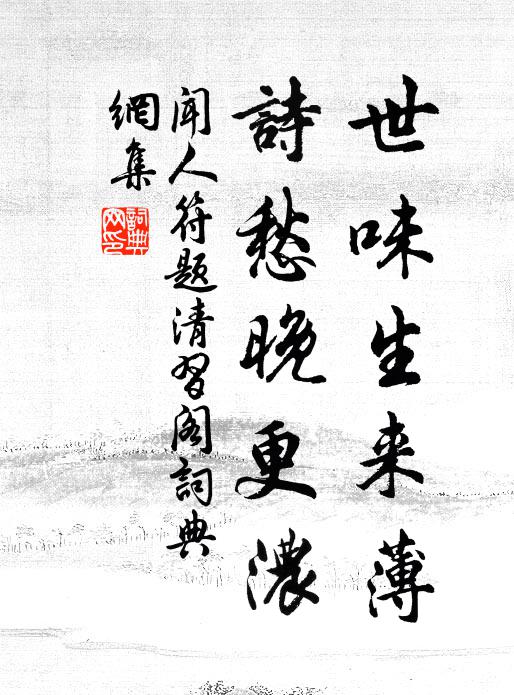 世味生来薄
詩愁晚更濃
聞人符题清習阁詞典
網集
詞典
网印